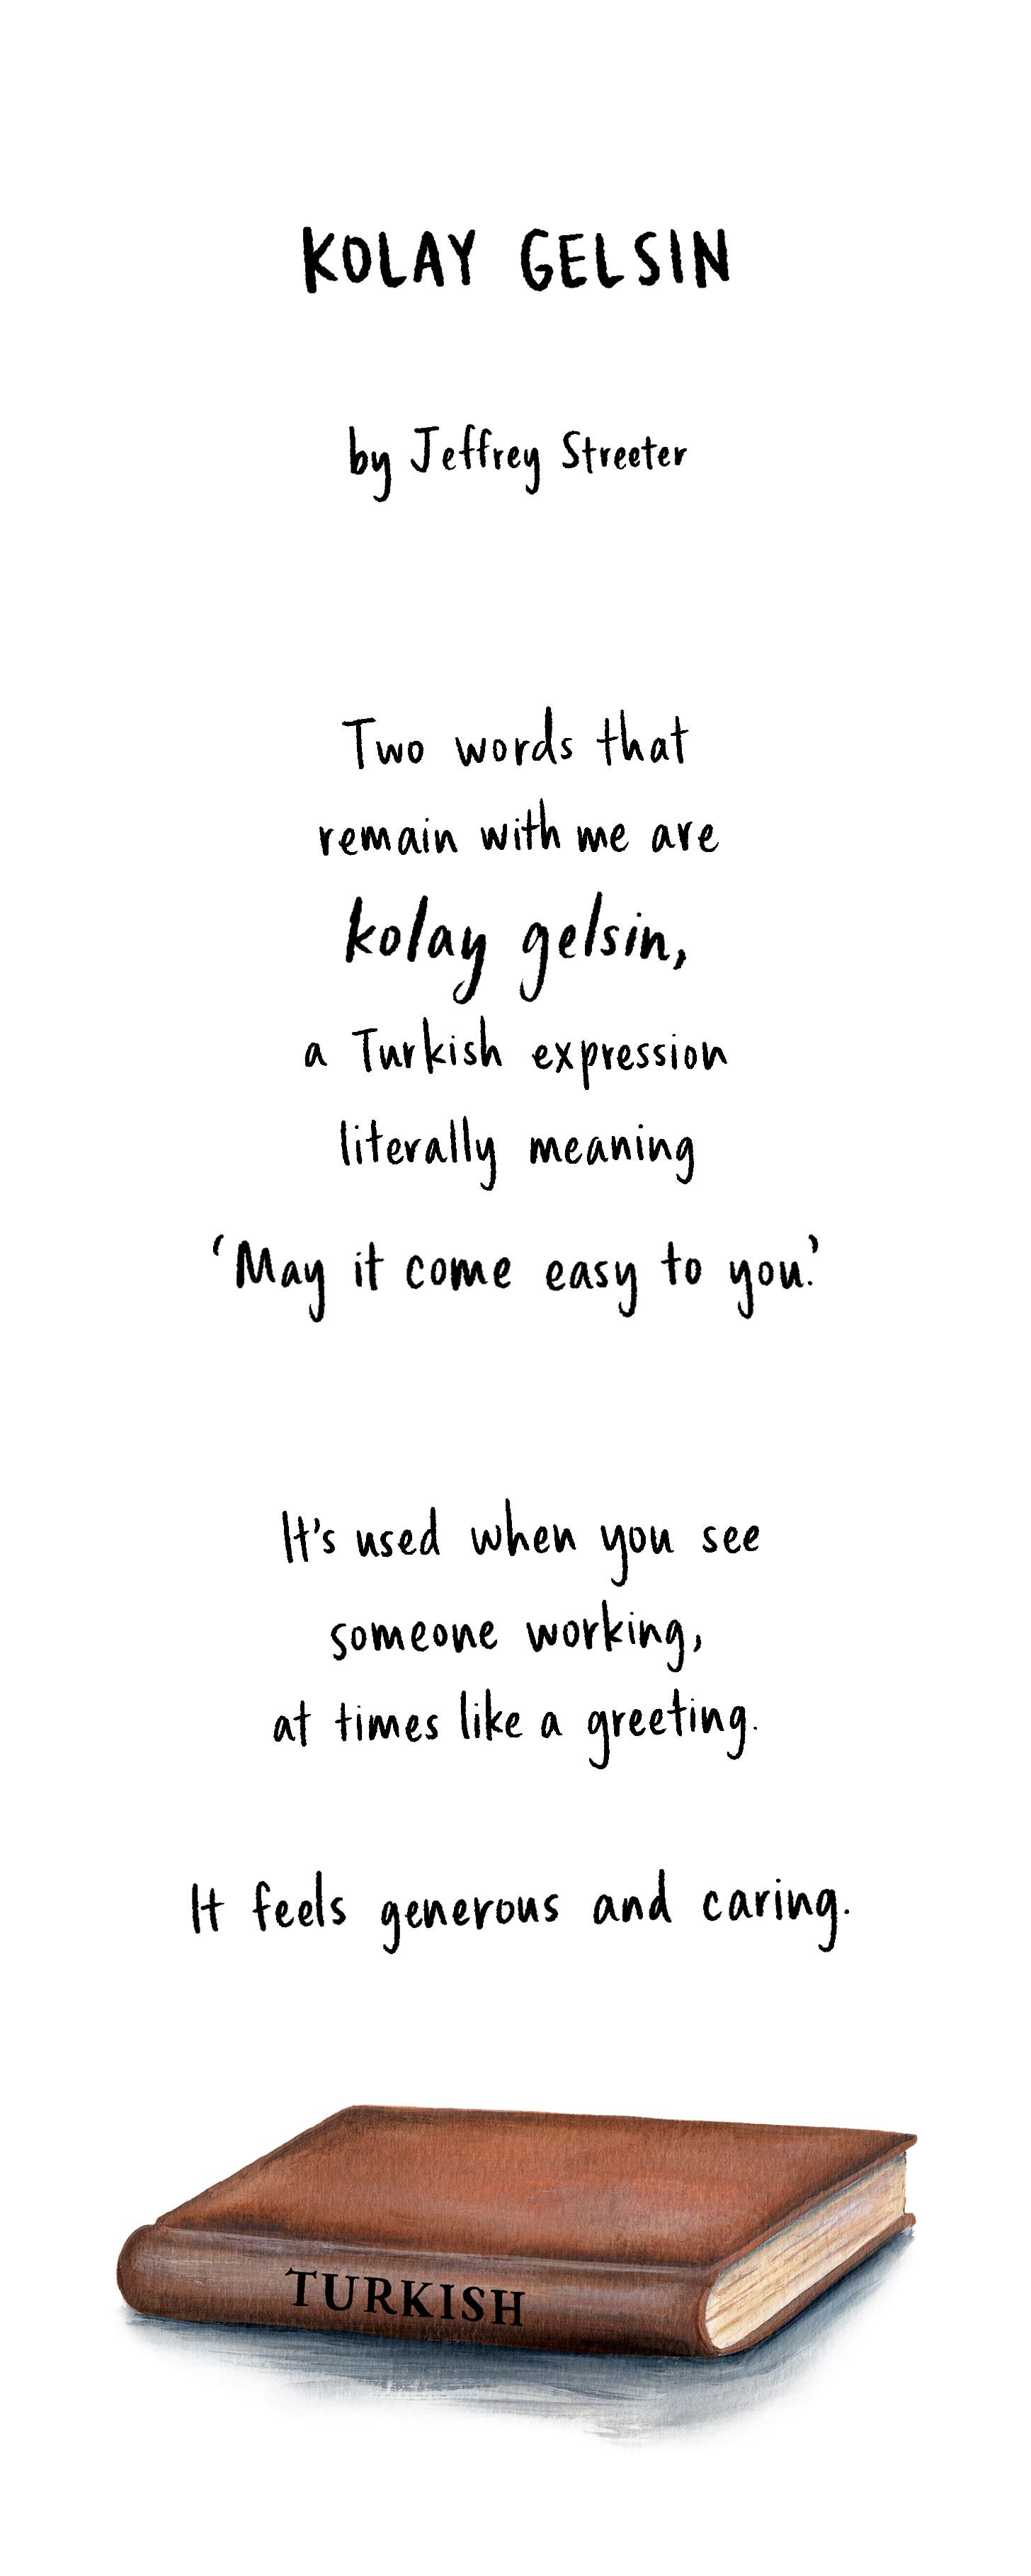 KOLAY GELSIN
by Jeffrey Streeter
Two words that
remain with me are
kolay gelsin,
a Turkish expression
literally meaning
‘May it come easy to you.’
It's used when you see
someone working,
at times like a greeting.
It feels generous and caring.
TURKISH